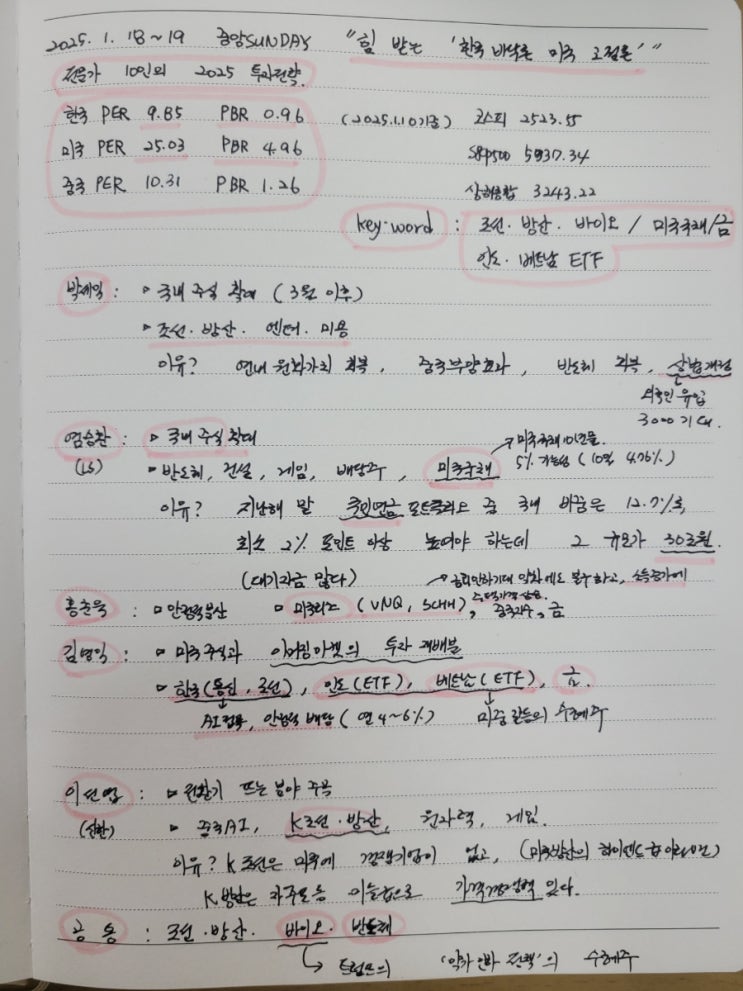 2025. 1. 18~19 중앙SUNDAY "힘 받는 '한국 바닥론 미국 고점론'"
전문가 10인의 2025 투자전략.
한국 PER 9.85 PBR 0.96 (2025.1.10기준) 코스피 2523.55
미국 PER 25.03 PBR 4.96 S&P500 5937.34
중국 PER 10.31 PBR 1.26 상해종합 3243.22
key-word : 조선·방산·바이오 / 미국국채/금
인도·베트남 ETF
박세익 : 국내 주식 확대 (3월 이후)
조선·방산·엔터·미용
이유? 연내 원화가치 회복, 중국부양효과, 반도체 회복, 상법개정
외국인 유입
3000 기대.
염승환 : 국내 주식 확대
(LS) 반도체, 건설, 게임, 배당주, 미국국채 → 미국국채 10년물
5% 가능성 (10일 4.76%)
이유? 지난해 말 국민연금 포트폴리오 중 국내 비중은 12.7%로,
최소 2% 포인트 이상 높여야 하는데 그 규모가 30조원.
(대기자금 많다) → 금리인하기대 약화에도 불구하고, 소득증가에
홍춘욱 : 안전자산 미국리츠 (VNQ, SCHH), 주택가격 상승. 중국주식, 금
김영익 : 미국 주식과 이머징마켓의 투자 재배분
한국(통신, 조선), 인도(ETF), 베트남(ETF), 금.
AI접목, 안정적 배당 (연 4~6%) 미중갈등의 수혜주
이선엽 : 원찮기 뜨는 분야 주목
(신한) 중국AI, K조선·방산, 원자력, 게임.
이유? K조선은 미국에 경쟁기업이 없고, (미국방산의 하이엔드
K방산은 자주포 등 미들급으로 가격경쟁력 있다.
공통 : 조선·방산·바이오·반도체
→ 트럼프의 '약가 인하 정책'의 수혜주